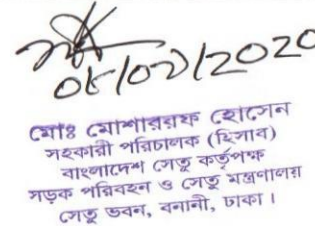 ০৮/০৩/2020
মোঃ মোশাররফ হোসেন
সহকারী পরিচালক (হিসাব)
বাংলাদেশ সেতু কর্তৃপক্ষ
সড়ক পরিবহন ও সেতু মন্ত্রণালয়
সেতু ভবন, বনানী, ঢাকা।